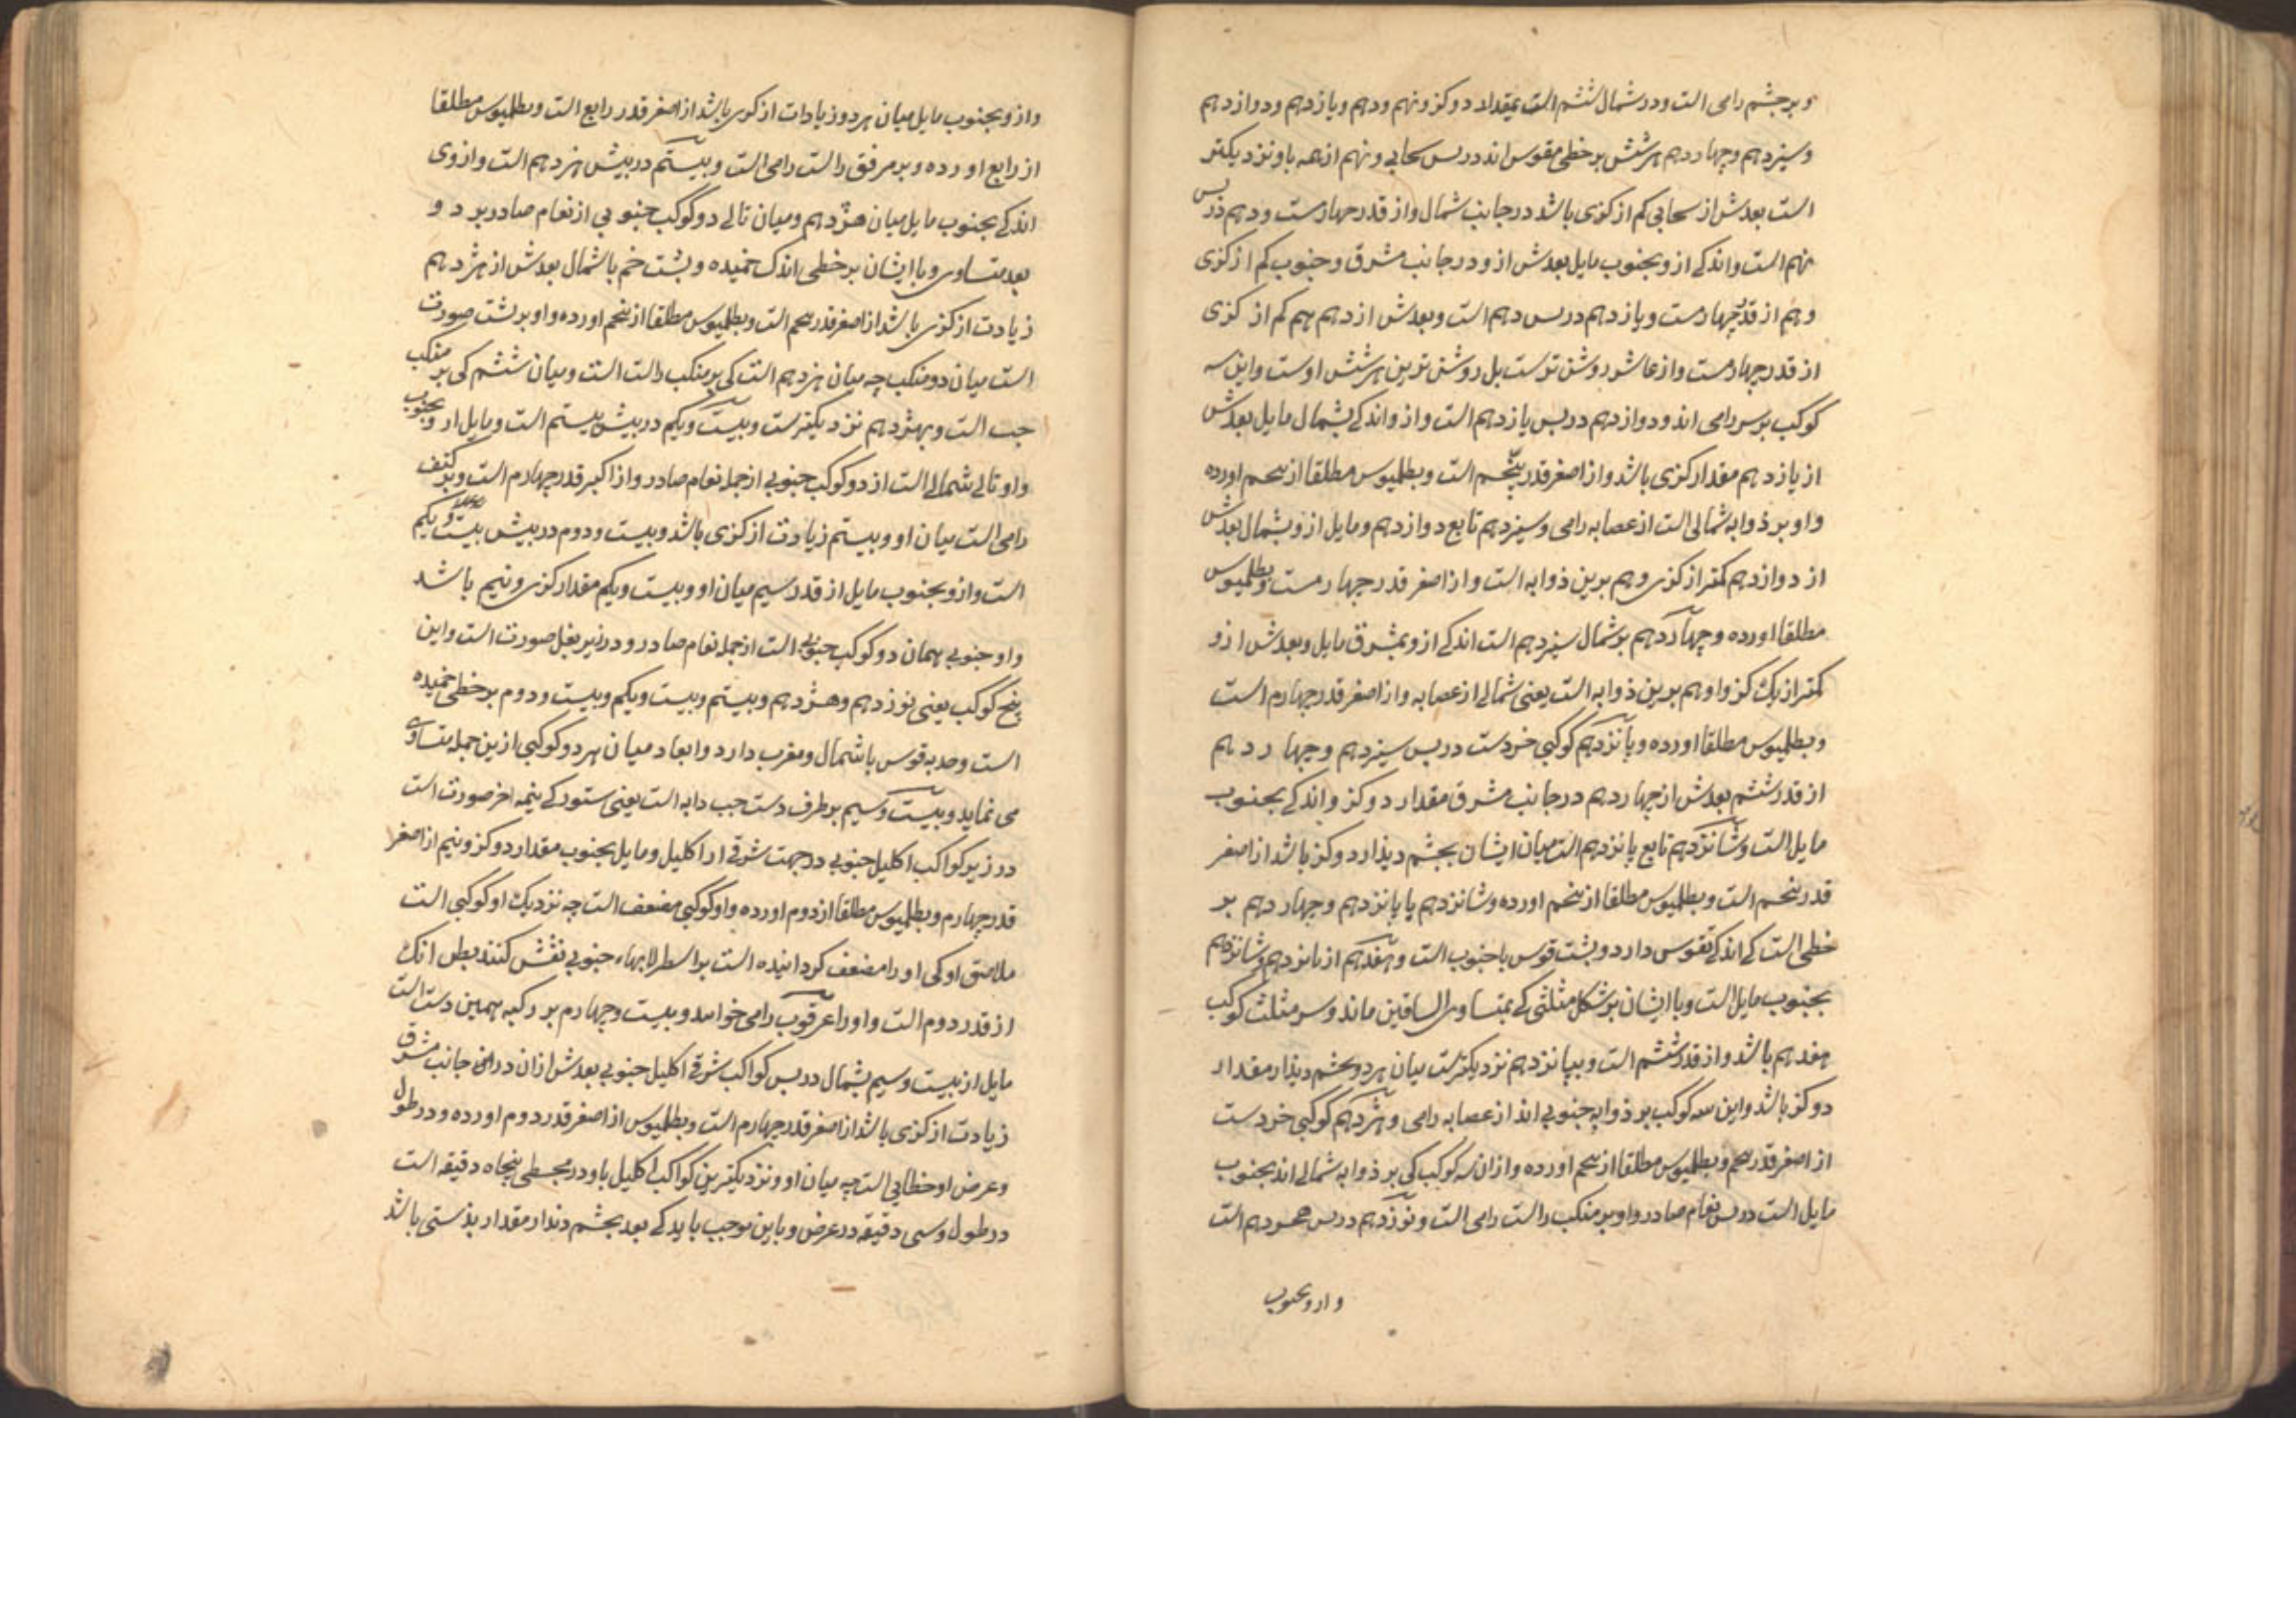 و بر چشم رامی است و در شمال ششم است بمقدار دو کز و نهم و دهم و یازدهم و دوازدهم
و سیزدهم و چهاردهم هر شش بر خطی مقوس اند در پس سحابی و نهم از همه باو نزدیکتر
است بعدش از سحابی کم از کزی باشد در جانب شمال و از قدر چهارمست و دهم در پس
نهم است و اندکی ازو بجنوب مایل بعدش ازو در جانب مشرق و جنوب کم از کزی
و هم از قدر چهارمست و یازدهم در پس دهم است و بعدش از دهم هم کم از کزی
از قدر چهارمست و از عاشر روشن ترست بل روشن ترین هر شش اوست و این سه
کوکب بر سر رامی اند و دوازدهم در پس یازدهم است و ازو اندکی بشمال مایل بعدش
از یازدهم مقدار کزی باشد و از اصغر قدر پنجم است و بطلمیوس مطلقا از پنجم اورده
و او بر ذوابه شمالی است از عصابه رامی و سیزدهم تابع دوازدهم و مایل ازو بشمال بعدش
از دوازدهم کمتر از کزی و هم برین ذوابه است و از اصغر قدر چهارمست و بطلمیوس
مطلقا اورده و چهاردهم بر شمال سیزدهم است اندکی ازو بمشرق مایل و بعدش ازو
کمتر از یک کز و او هم برین ذوابه است یعنی شمالی از عصابه و از اصغر قدر چهارم است
و بطلمیوس مطلقا اورده و پانزدهم کوکبی خردست در پس سیزدهم و چهاردهم
از قدر ششم بعدش از چهاردهم در جانب مشرق مقدار دو کز و اندکی بجنوب
مایل است و شانزدهم تابع پانزدهم است میان ایشان بچشم دیدار دو کز باشد از اصغر
قدر پنجم است و بطلمیوس مطلقا از پنجم اورده و شانزدهم با پانزدهم و چهاردهم بر
خطی است کی اندکی تقوس دارد و پشت قوس با جنوب است و هفدهم از پانزدهم و شانزدهم
بجنوب مایل است و با ایشان بر شکل مثلثی کی بمتساوی الساقین ماند و سر مثلث کوکب
هفدهم باشد و از قدر ششم است و بپانزدهم نزدیکترست میان هر دو بچشم دیدار مقدار
دو کز باشد و این سه کوکب بر ذوابه جنوبی اند از عصابه رامی و هژدهم کوکبی خردست
از اصغر قدر پنجم و بطلمیوس مطلقا از پنجم اورده و ازان سه کوکب کی بر ذوابه شمالی اند بجنوب
مایل است در پس نعام صادر و او بر منکب راست رامی است و نوزدهم در پس هجودهم است
و ازو بجنوب
و ازو بجنوب مایل میان هر دو زیادات از کزی باشد از اصغر قدر رابع است و بطلمیوس مطلقا
از رابع اورده و بر مرفق راست رامی است و بیستم در پیش هژدهم است و از وی
اندکی بجنوب مایل میان هژدهم و میان تالی دو کوکب جنوبی از نعام صادر بر دو
بعد متساوی و با ایشان بر خطی اندک خمیده و پشت خم با شمال بعدش از هژدهم
زیادت از کزی باشد از اصغر قدر پنجم است و بطلمیوس مطلقا از پنجم اورده و او بر پشت صورت
است میان دو منکب چه میان هژدهم است کی بر منکب راست است و میان ششم کی بر منکب
چپ است و بهژدهم نزدیکترست و بیست و یکم در پیش بیستم است و مایل ازو بجنوب
و او تالی شمالی است از دو کوکب جنوبی از جمله نعام صادر و از اکبر قدر چهارم است و بر کتف
رامی است میان او و بیستم زیادت از کزی باشد و بیست و دوم در پیش بیست و یکم
است و ازو بجنوب مایل از قدر سیم میان او و بیست و یکم مقدار کزی و نیم باشد
و او جنوبی همان دو کوکب جنوبی است از جمله نعام صادر و در زیر بغل صورت است و این
پنج کوکب یعنی نوزدهم و هژدهم و بیستم و بیست و یکم و بیست و دوم بر خطی خمیده
است و حدبه قوس با شمال و مغرب دارد و ابعاد میان هر دو کوکبی ازین جمله متساوی
می نماید و بیست و سیم بر طرف دست چپ دابه است یعنی ستور کی نیمه اخر صورت است
در زیر کواکب اکلیل جنوبی در جهت شرقی از اکلیل و مایل بجنوب مقدار دو کز و نیم از اصغر
قدر چهارم و بطلمیوس مطلقا از دوم اورده و او کوکبی مضعف است چه نزدیک او کوکبی است
ملاصق او کی او را مضعف کردانیده است بر اسطرلابهاء جنوبی نقش کنند بظن انک
از قدر دوم است و او را عرقوب رامی خوانند و بیست و چهارم بر رکبه همین دست است
مایل از بیست و سیم بشمال در پس کواکب شرقی اکلیل جنوبی بعدش ازان در جانب مشرق
زیادت از کزی باشد از اصغر قدر چهارم است و بطلمیوس از اصغر قدر دوم اورده و در طول
و عرض او خطایی است چه میان او و نزدیکترین کواکب اکلیل باو در مجسطی پنجاه دقیقه است
در طول و سی دقیقه در عرض و باین موجب باید کی بعد بچشم دیدار مقدار بدستی باشد